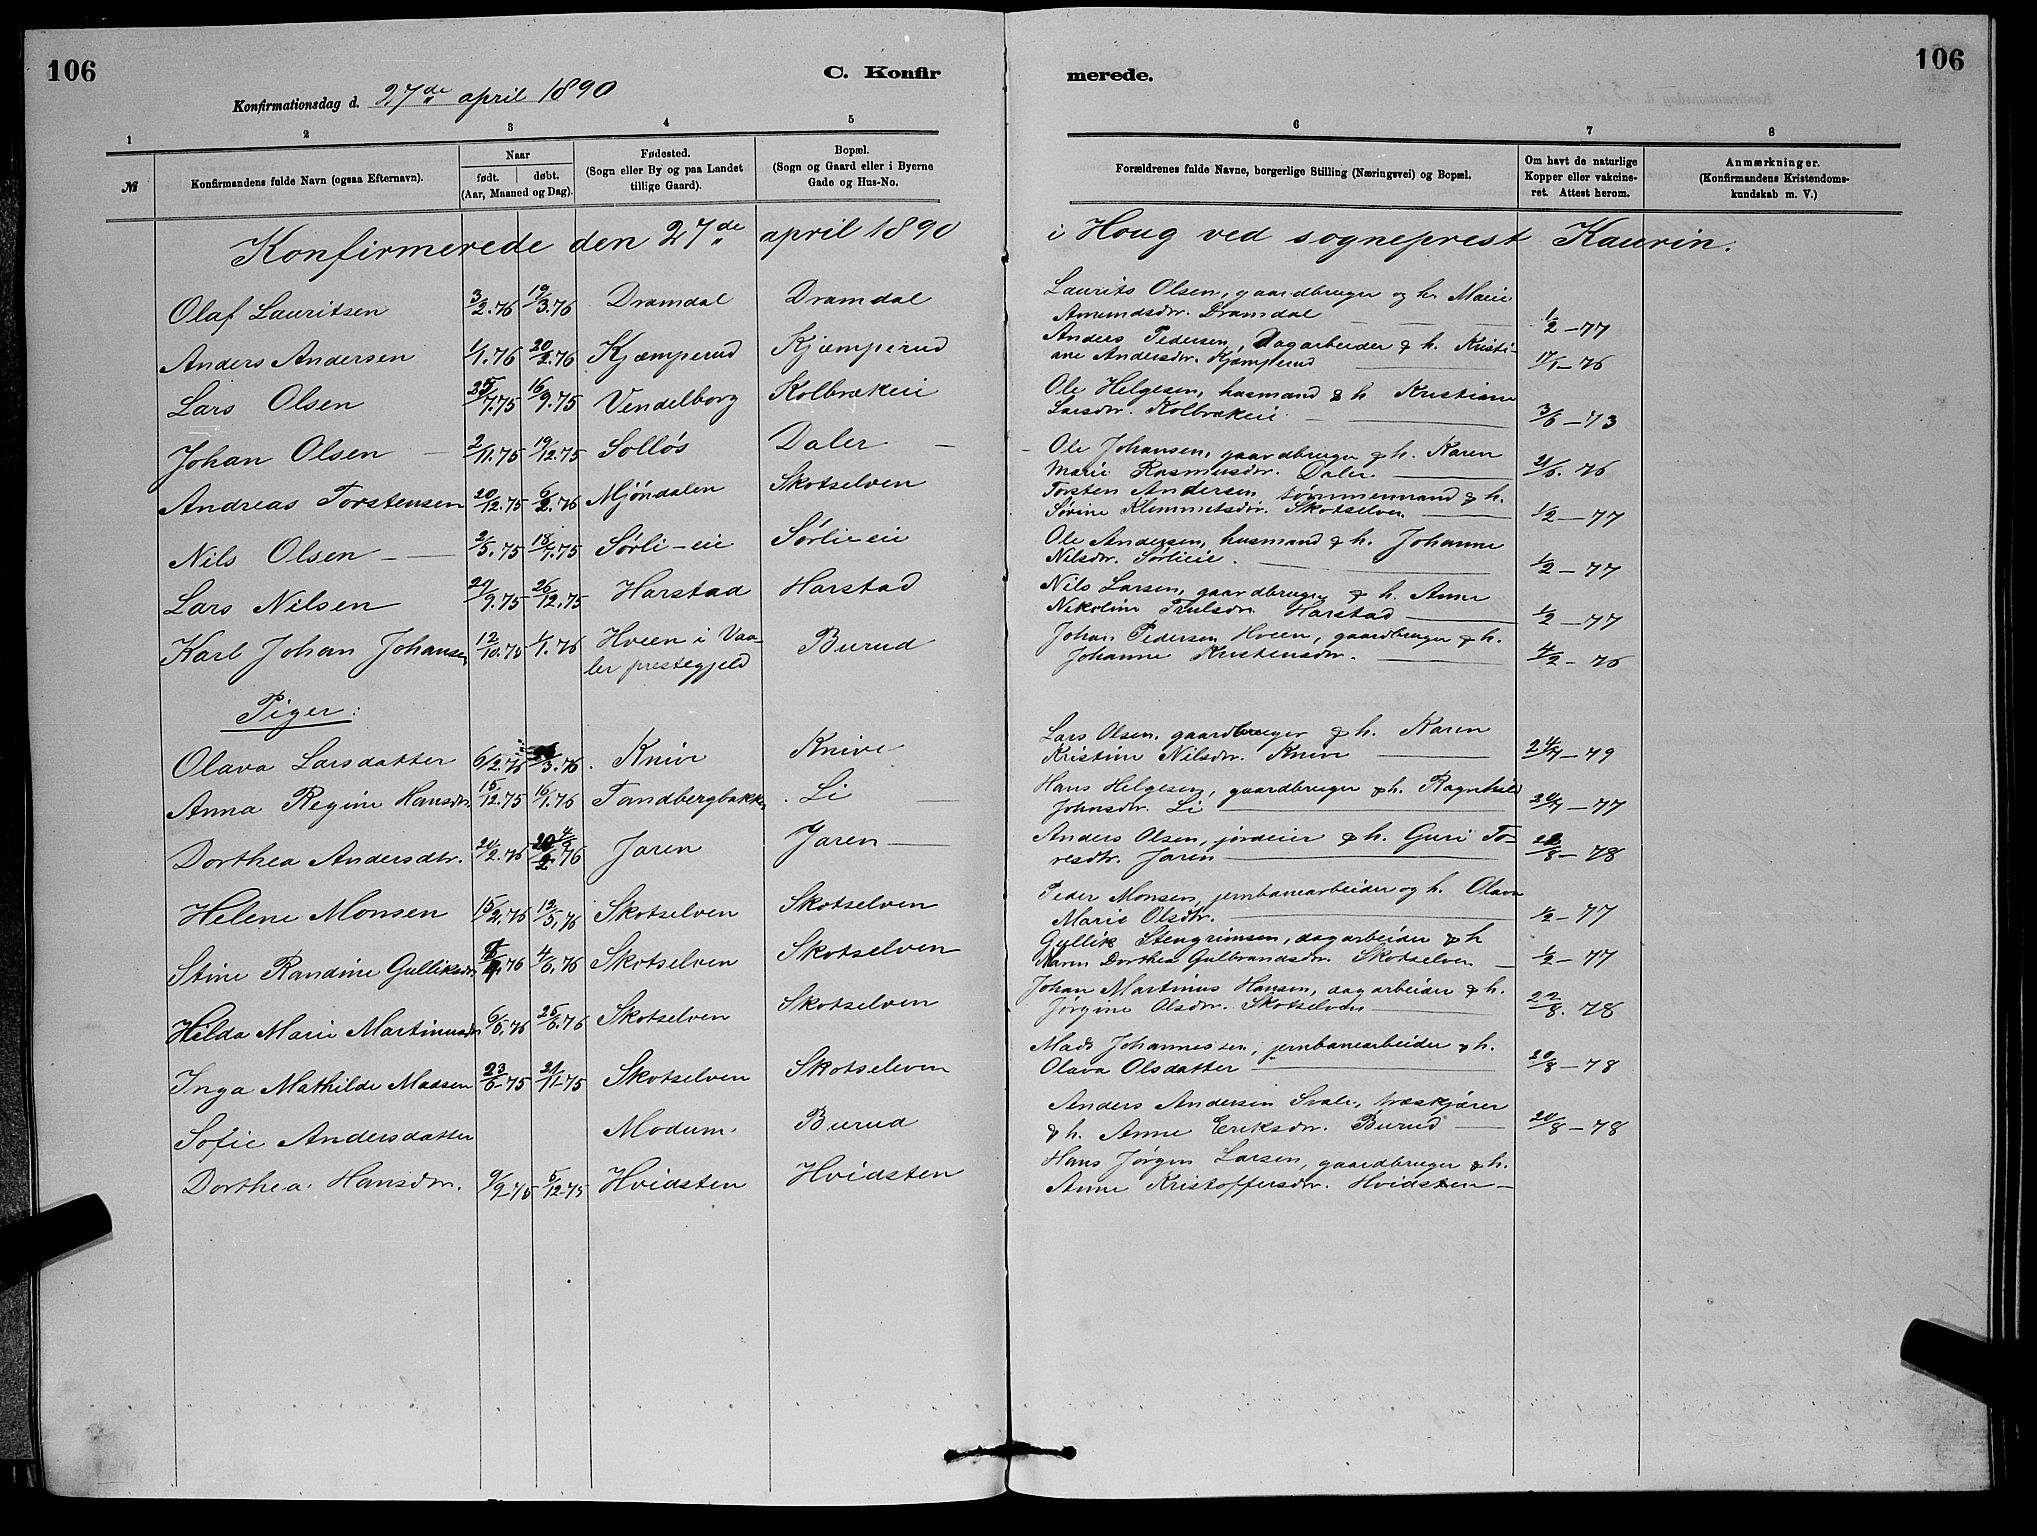 106
C. Konfir
merede.
106
Konfirmationsdag d. 27de april 1890
1 2 3 4 5 6 7 8
№ Konfirmandens fulde Navn (ogsaa Efternavn). Naar født. døbt. (Aar, Maaned og Dag). Fødested. (Sogn eller By og paa Landet tillige Gaard). Bopæl. (Sogn og Gaard eller i Byerne Gade og Hus-No. Forældrenes fulde Navne, borgerlige Stilling (Næringsvei) og Bopæl. Om havt de naturlige Kopper eller vakcineret. Attest herom. Anmærkninger. (Konfirmandens Kristendomskundskab m. V.)
Konfirmerede den 27de april 1890 i Houg ved sogneprest Kaurin.
Olaf Lauritsen 3/2.76 19/3.76 Dramdal Dramdal Laurits Olsen, gaardbruger og h. Marie
Amundsdtr. Dramdal 1/2-77
Anders Andersen 1/1.76 20/2.76 Kjæmperud Kjæmperud Anders Pedersen, Dagarbeider & h. Kristi-
ane Andersdtr. Kjæmperud 17/1-76
Lars Olsen 25/7.75 16/9.75 Vendelborg Kolbrækeie Ole Helgesen, husmand & h. Kristiane
Larsdtr. Kolbrækeie 3/6-73
Johan Olsen 2/11.75 19/12.75 Solløs Daler Ole Johansen, gaardbruger & h. Karen
Marie Rasmusdtr. Daler 21/6.76
Andreas Torstensen 20/12.75 6/2.76 Mjøndalen Skotselven Torsten Andersen, tømmermand & h.
Sørine Klemmetsdtr. Skotselven 1/2-77
Nils Olsen 2/5.75 18/7.75 Sørli-eie Sørli-eie Ole Andersen, husmand & h. Johanne
Nilsdtr. Sørlieie. 1/2-77
Lars Nilsen 29/9.75 26/12.75 Harstad Harstad Nils Larsen, gaardbruger & h. Anne
Nikoline Trulsdtr. Harstad 1/2-77
Karl Johan Johansen 12/10.75 1/1.76 Hveen i Vaa-
ler prestegjeld Burud Johan Pedersen Hveen, gaardbruger & h.
Johanne Kristensdtr. 4/2-76
Piger:
Olava Larsdatter 6/2.76 /3.76 Knive Knive Lars Olsen, gaardbruger & h. Karen
Kristine Nilsdtr. Knive 24/7-79
Anna Regine Hansdtr. 15/12.75 16/1.76 Tandbergbakken Li Hans Helgesen, gaardbruger & h. Ragnhild
Johnsdtr. Li 24/7-77
Dorthea Andersdtr. 20/2.76 76 Jaren Jaren Anders Olsen, jordeier & h. Guri To-
resdtr. Jaren 22/8-78
Helene Monsen 15/2.76 12/5.76 Skotselven Skotselven Peder Monsen, jernbanearbeider og h. Olava
Marie Olsdtr. 1/2-77
Stine Randine Gulliksdtr. 76 4/6.76 Skotselven Skotselven Gullik Stengrimsen, dagarbeider & h
Maren Dorthea Gulbrandsdtr. Skotselven 1/2-77
Hilda Marie Martinusdtr. 6/5.76 25/6.76 Skotselven Skotselven Johan Martinus Hansen, dagarbeider & h.
Jørgine Olsdtr. Skotselven 22/8.78
Inga Mathilde Madsen 23/6-75 21/11-75 Skotselven Skotselven Mads Johannessen, jernbanearbeider & h.
Olava Olsdatter 20/8-78
Sofie Andersdatter Modum Burud Anders Andersen Svale, træskjærer
& h. Anne Eriksdtr. Burud 20/8-78
Dorthea Hansdtr. 9/9-75 5/12-75 Hvidsten Hvidsten Hans Jørgen Larsen, gaardbruger & h.
Anne Kristoffersdtr. Hvidsten